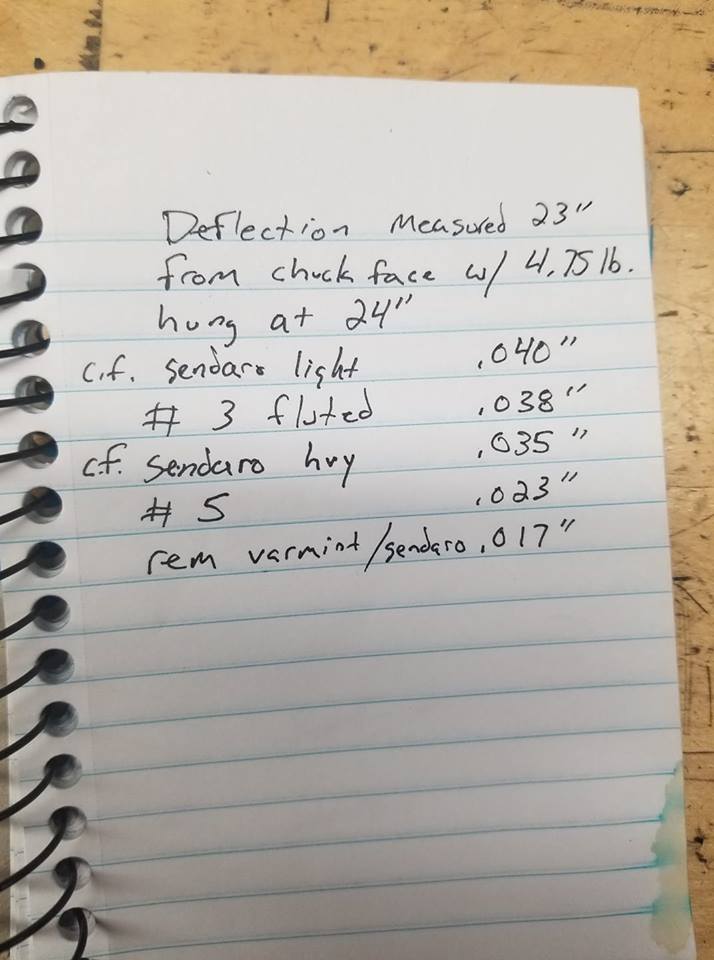 Deflection Measured 23"
from chuck face w/ 4.75 lb.
hung at 24"
c.f. sendaro light .040"
# 3 fluted .038"
c.f. sendaro hvy .035"
# 5 .023"
rem varmint/sendaro .017"